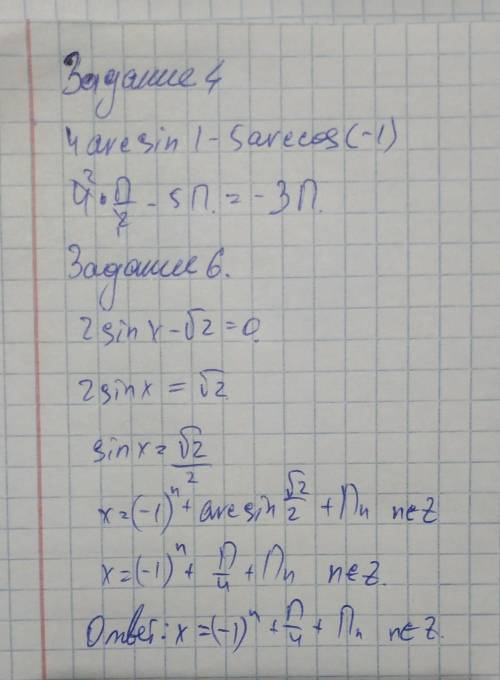 Задание 4
4 arcsin 1 - 5 arccos(-1)
4² · П/2 - 5П. = -3П.
Задание 6.
2 sin x - √2 = 0.
2 sin x = √2
sin x = √2/2
x = (-1)ⁿ + arcsin √2/2 + Пn n∈Z
x = (-1)ⁿ + П/4 + Пn n∈Z.
Ответ: x = (-1)ⁿ + П/4 + Пn n∈Z.